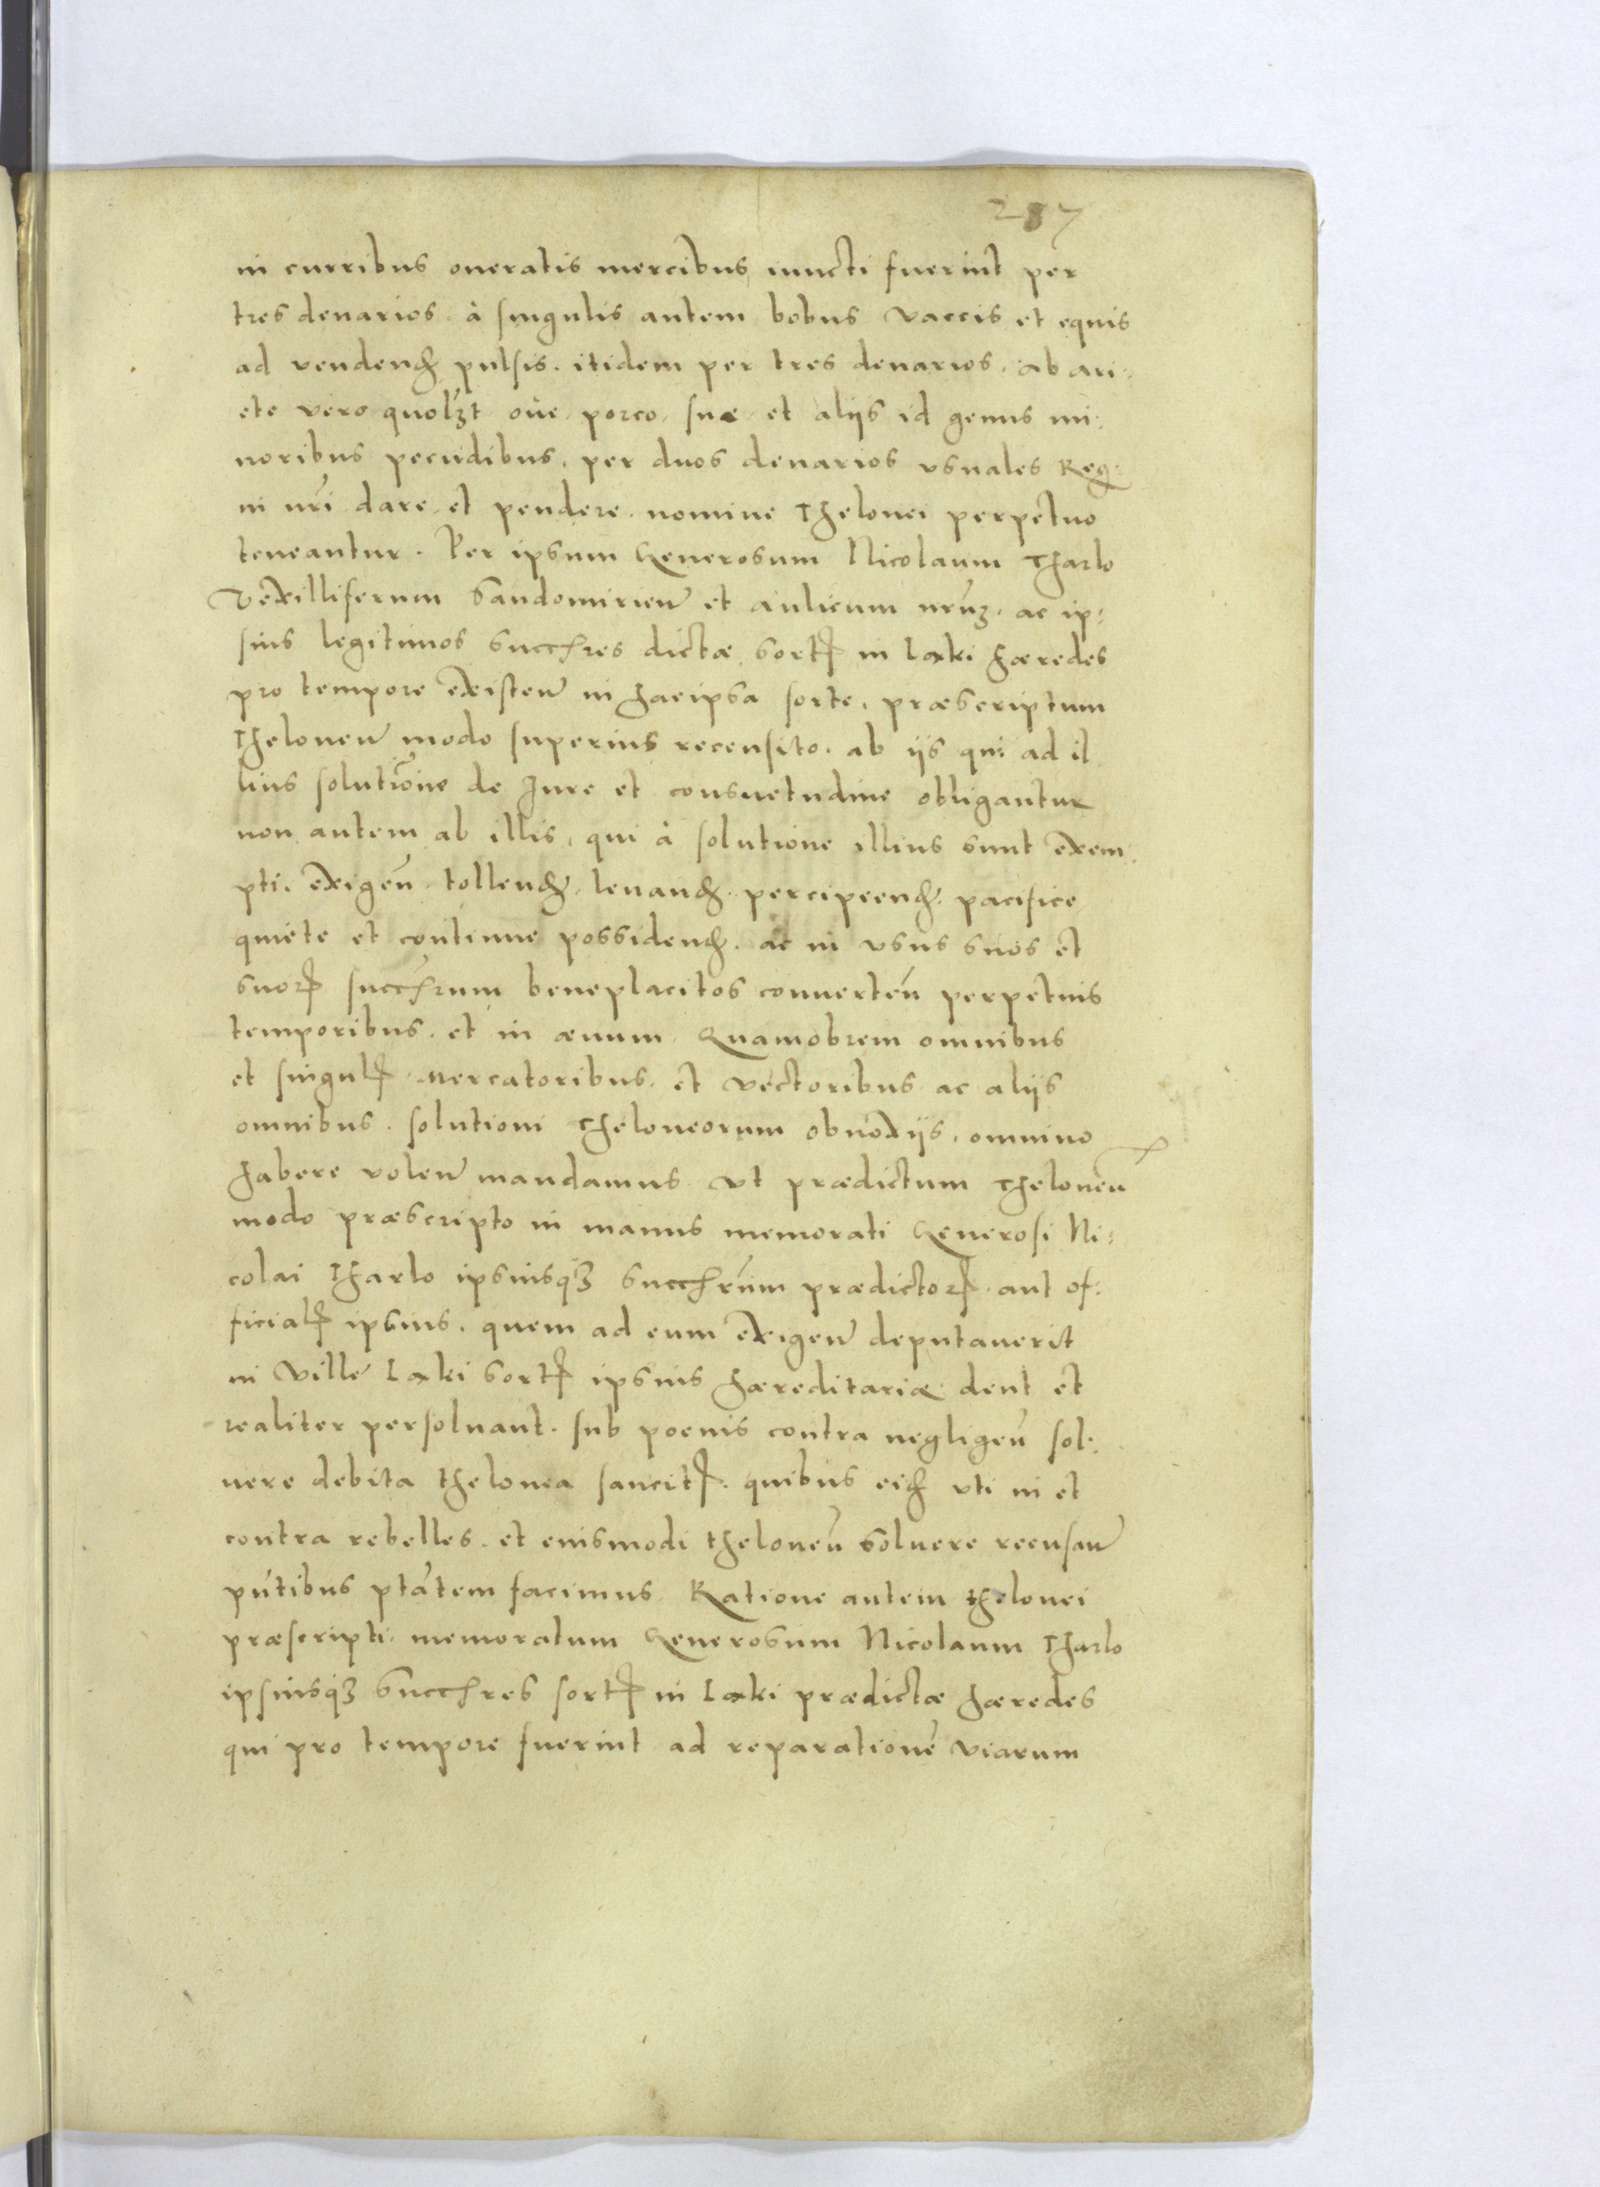 287
in curribus oneratis mercibus iuncti fuerint per
tres denarios. à singulis autem bobus vaccis et equis
ad vendend pulsis. itidem per tres denarios. ab ari:
ete vero quolȝt oue. porco. sue. et aliis id genus mi:
noribus pecudibus. per duos denarios vsuales Reg:
ni nr̃i dare et pendere. nomine Thelonei perpetuo
teneantur. Per ipsum Generosum Nicolaum Tharlo
Vexilliferum Sandomirien̄ et aulicum nrūȝ. ac ip:
sius legitimos succr̃es dictæ sortꝭ in Laki hæredes
pro tempore existen̄ in hac ipsa sorte. præscriptum
Theloneū modo superius recensito. ab iis qui ad il
lius solutiōne de Iure et consuetudine obligantur
non autem ab illis, qui à solutione illius sunt exem:
pti. exigen̄. tollend. leuand. percipeend. pacifice
quiete et continue possidend. ac in vsus suos et
suorꝝ succr̃um beneplacitos conuerten̄ perpetuis
temporibus. et in æuum. Quamobrem omnibus
et singulꝭ mercatoribus. et vectoribus ac aliis
omnibus. solutioni Theloneorum obnoxiis, omnino
habere volen̄ mandamus. Vt prædictum Theloneū
modo præscripto in manus memorati Generosi Ni:
colai Tharlo ipsiusqȝ succr̃um prædictorꝝ. aut of:
ficialꝭ ipsius. quem ad eum exigen̄ deputauerit
in Ville Laki sortꝭ ipsius hæreditariæ dent et
realiter persoluant. sub poenis contra negligen̄ sol:
uere debita thelonea sancitꝭ. quibus eid vti in et
contra rebelles. et eiusmodi theloneū soluere recusan̄
pn̄tibus ptātem facimus. Ratione autem thelonei
præscripti. memoratum Generosum Nicolaum Tharlo
ipsiusqȝ succr̃es sortꝭ in Laki prædictæ hæredes
qui pro tempore fuerint ad reparationē viarum